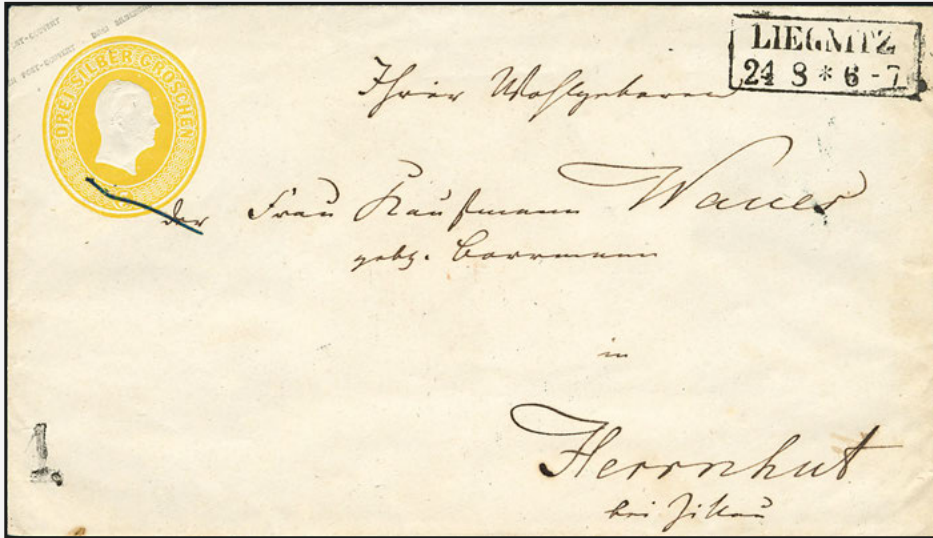 POST-COUVERT
POST-COUVERT
DREI SILBER GROSCHEN
LIEGNITZ
24 8 * 6 - 7
Ihrer Wohlgeboren
der Frau Kaufmann Wauer
gebr. Borrmann
in
Herrnhut
bei Zittau
1.